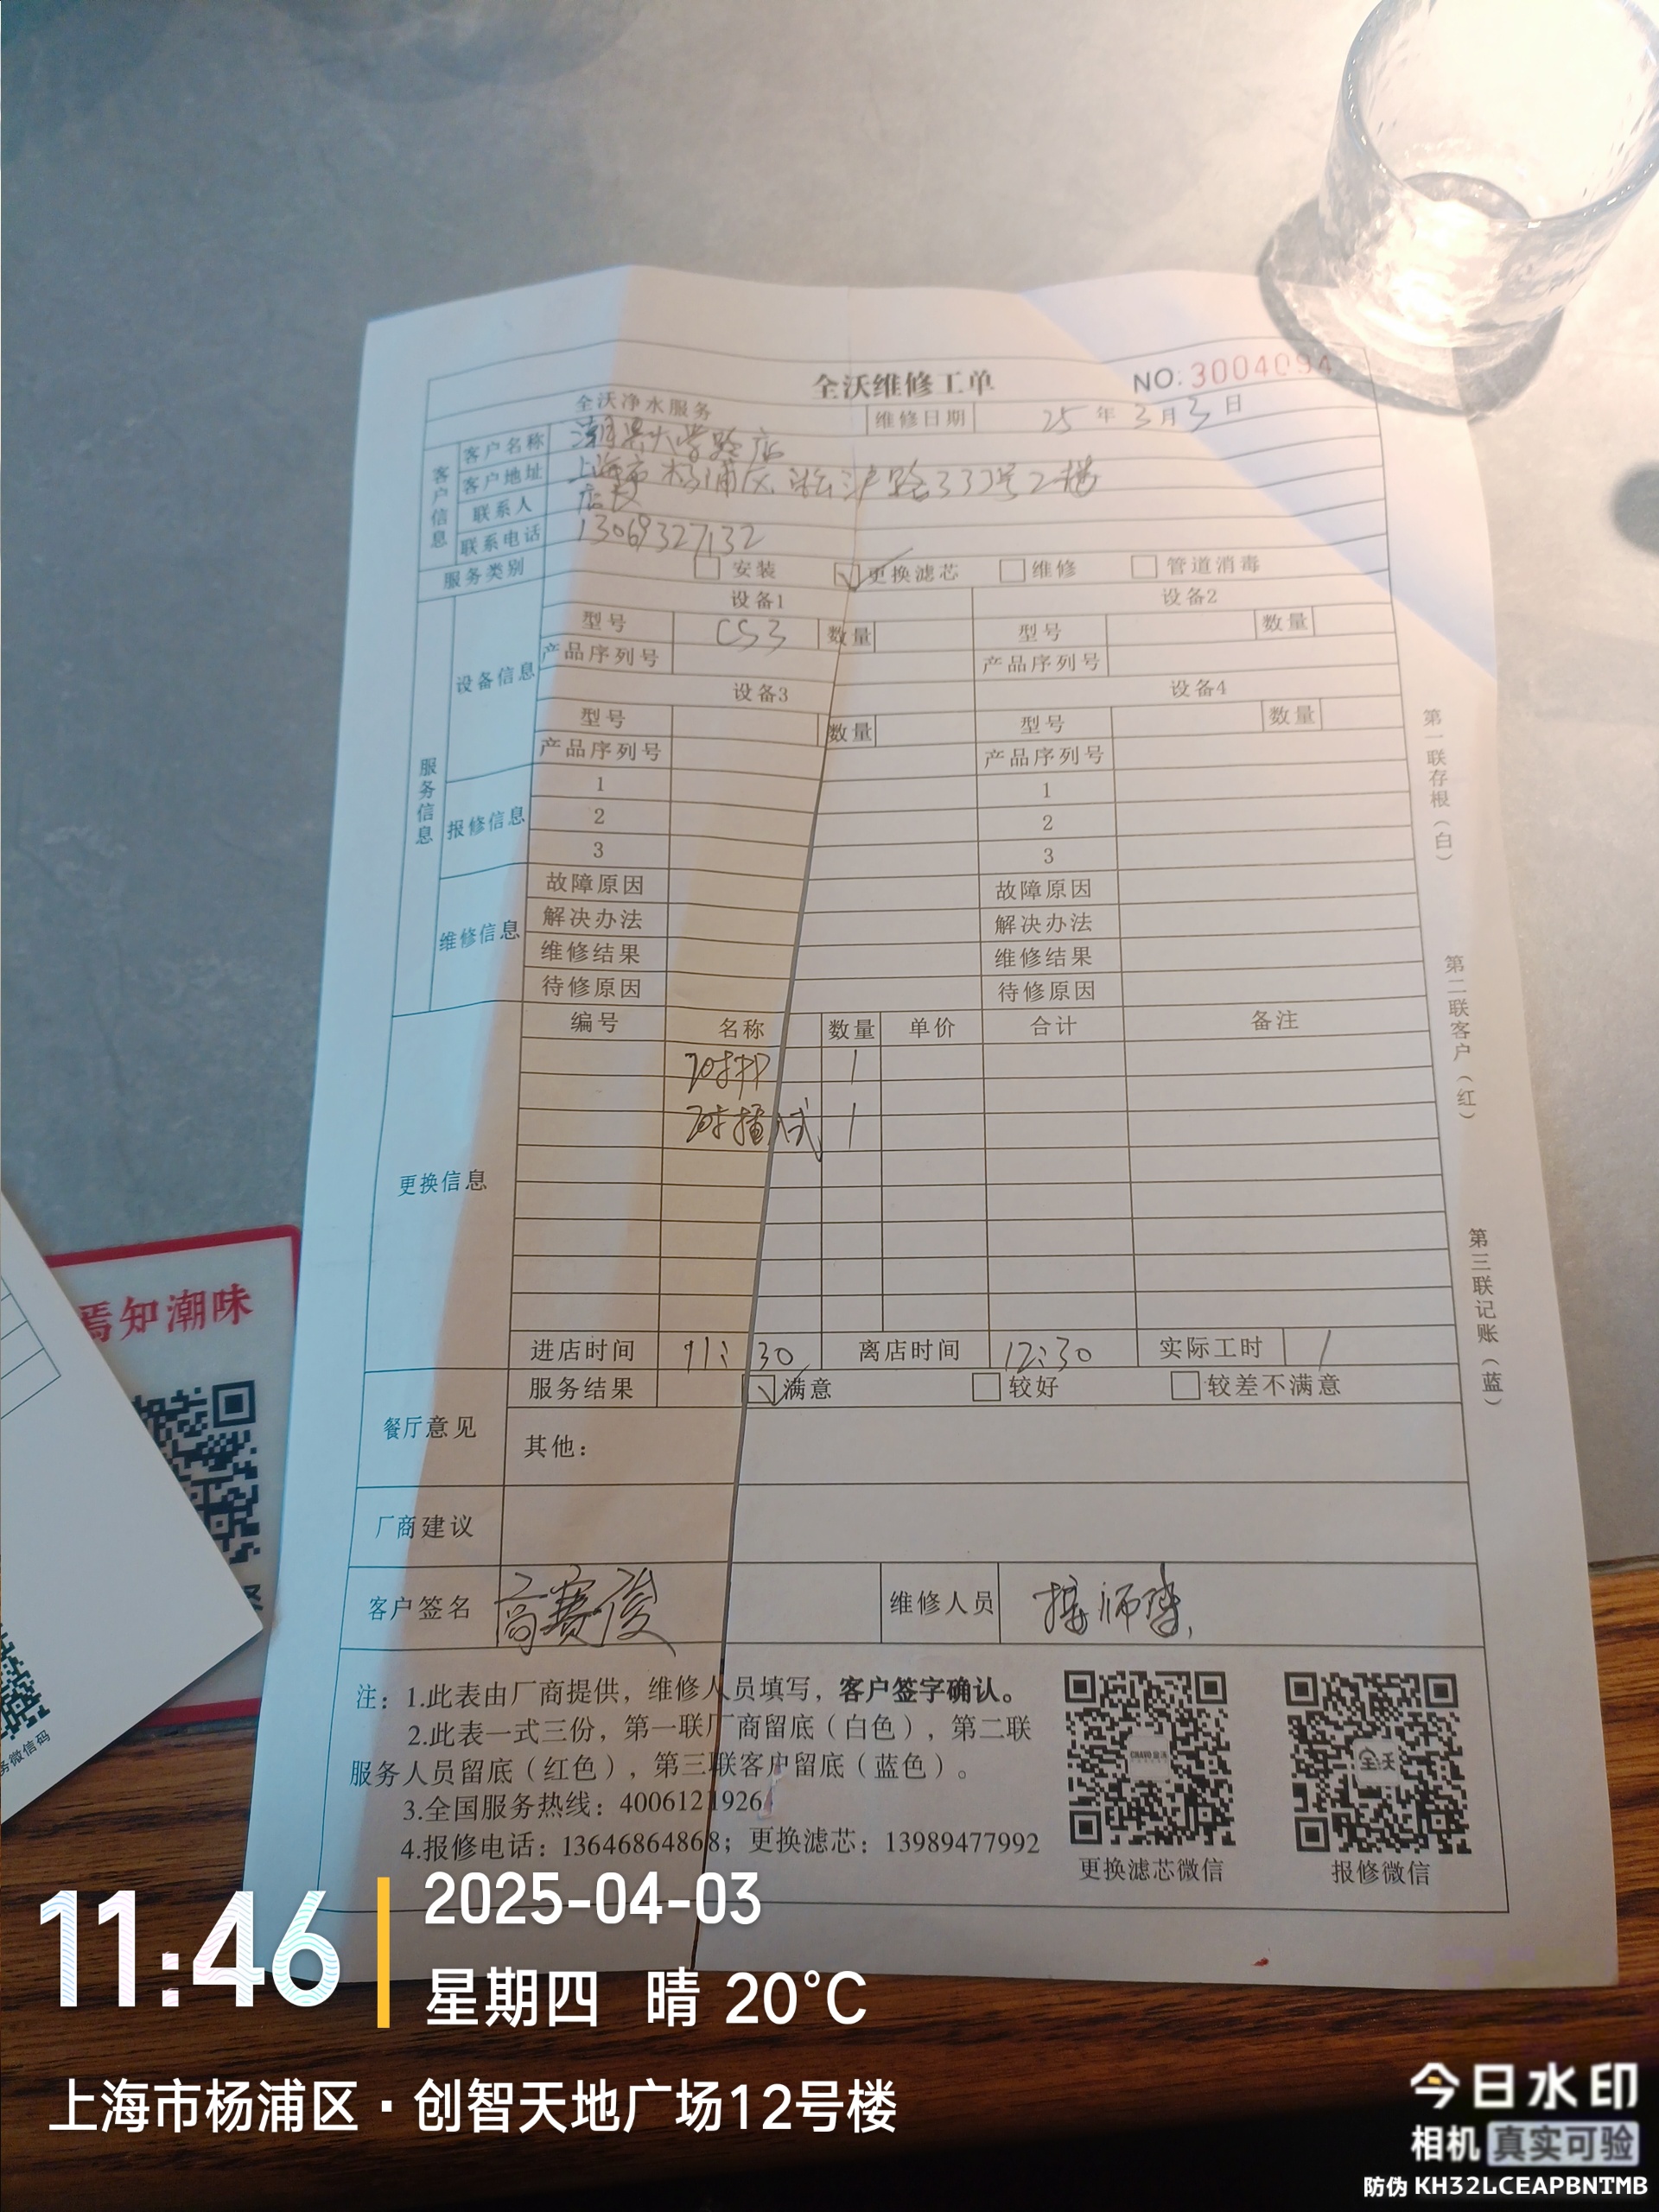 全沃维修工单
NO: 3004094
全沃净水服务 维修日期 25 年 3 月 3 日
客户信息
客户名称 大学路店
客户地址 上海市杨浦区淞沪路333号2楼
联系人 店长
联系电话 13069327132
服务类别 安装 更换滤芯 维修 管道消毒
服务信息
设备信息
设备1 设备2
型号 CS3 数量 型号 数量
产品序列号 产品序列号
设备3 设备4
型号 数量 型号 数量
产品序列号 产品序列号
报修信息
1 1
2 2
3 3
维修信息
故障原因 故障原因
解决办法 解决办法
维修结果 维修结果
待修原因 待修原因
更换信息
编号 名称 数量 单价 合计 备注
1
1
进店时间 11:30 离店时间 12:30 实际工时 1
餐厅意见
服务结果 满意 较好 较差不满意
其他:
厂商建议
客户签名 高赛 维修人员
注: 1.此表由厂商提供，维修人员填写，客户签字确认。
2.此表一式三份，第一联厂商留底（白色），第二联
服务人员留底（红色），第三联客户留底（蓝色）。
3.全国服务热线：4006121926
4.报修电话：13646864868；更换滤芯：13989477992
更换滤芯微信 报修微信
全沃
第一联存根（白）
第二联客户（红）
第三联记账（蓝）
焉知潮味
务微信码
11:46
2025-04-03
星期四 晴 20°C
上海市杨浦区·创智天地广场12号楼
今日水印
相机 真实可验
防伪 KH32LCEAPBNTMB